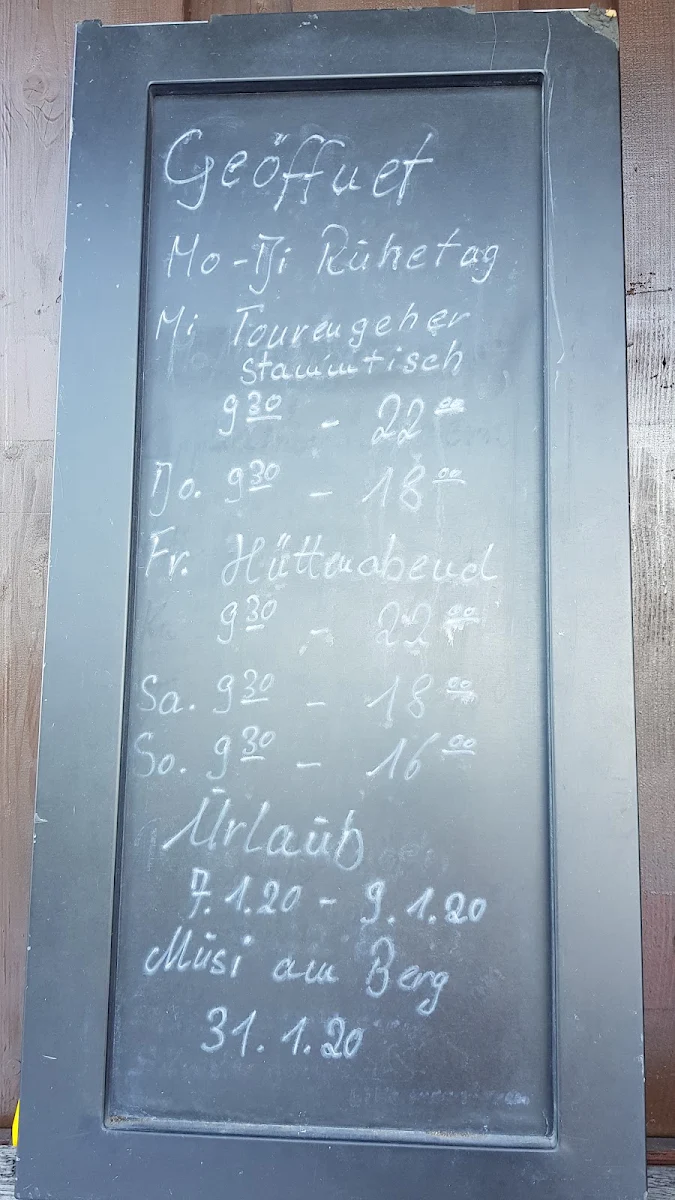 Geöffnet
Mo-Di Ruhetag
Mi Tourengeher
stammtisch
9 30 - 22 00
Do. 9 30 - 18 00
Fr. Hüttenabend
9 30 - 22 00
Sa. 9 30 - 18 00
So. 9 30 - 16 00
Urlaub
7.1.20 - 9.1.20
Musi am Berg
31.1.20